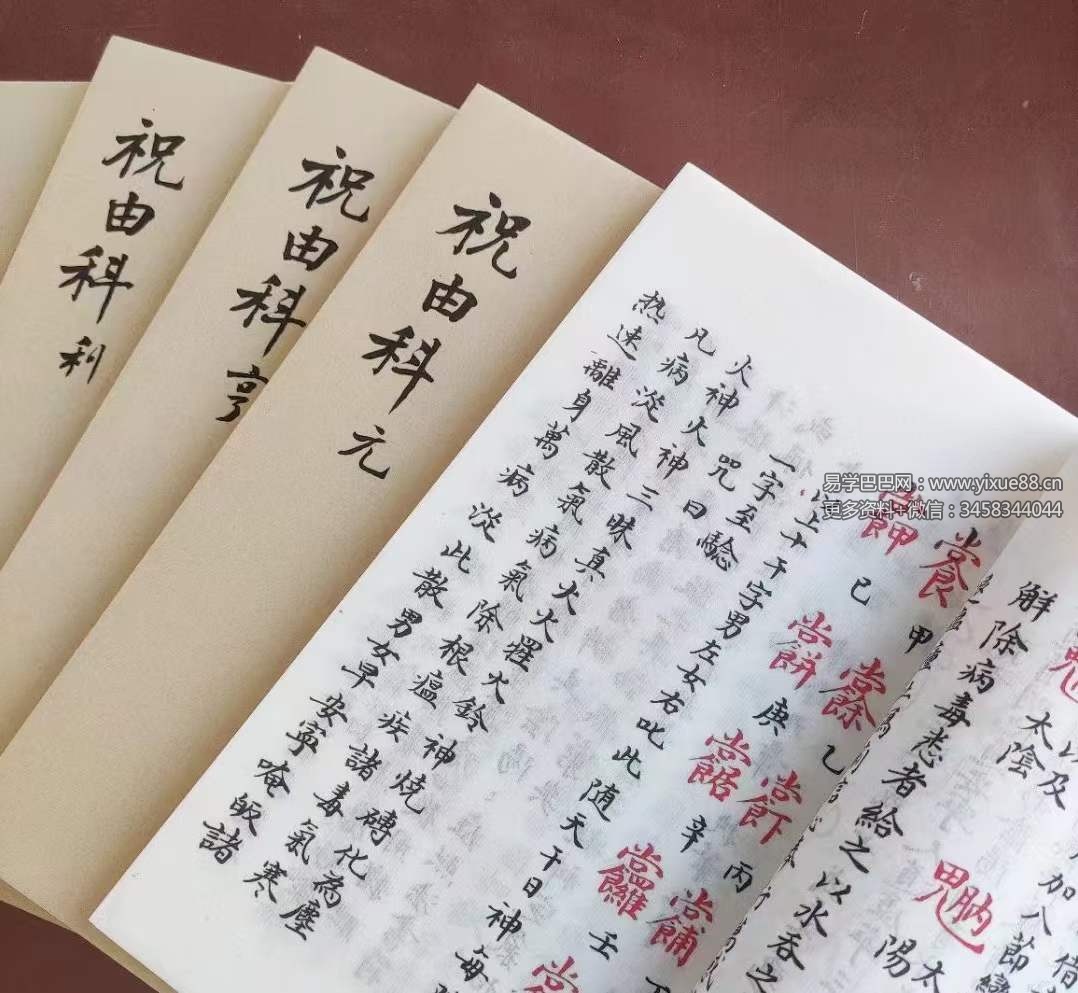 解除病毒患者給之以水吞之
以及
太陰
加八節
太
陽
甲
乙
丙
己
庚
辛
壬
以上十干字男左女右叱此随天干日神每
一字至驗
咒曰
火神火神三昧真火火猩火鈴神燒磚化為塵
凡病淡風散氣病氣除根瘟疾諸毒氣寒
热速離身萬病淡此散男女早安寧唵皈諸
祝由科 元
祝由科 亨
祝由科 利
易学巴巴网：www.yixue88.cn
更多资料+微信：3458344044